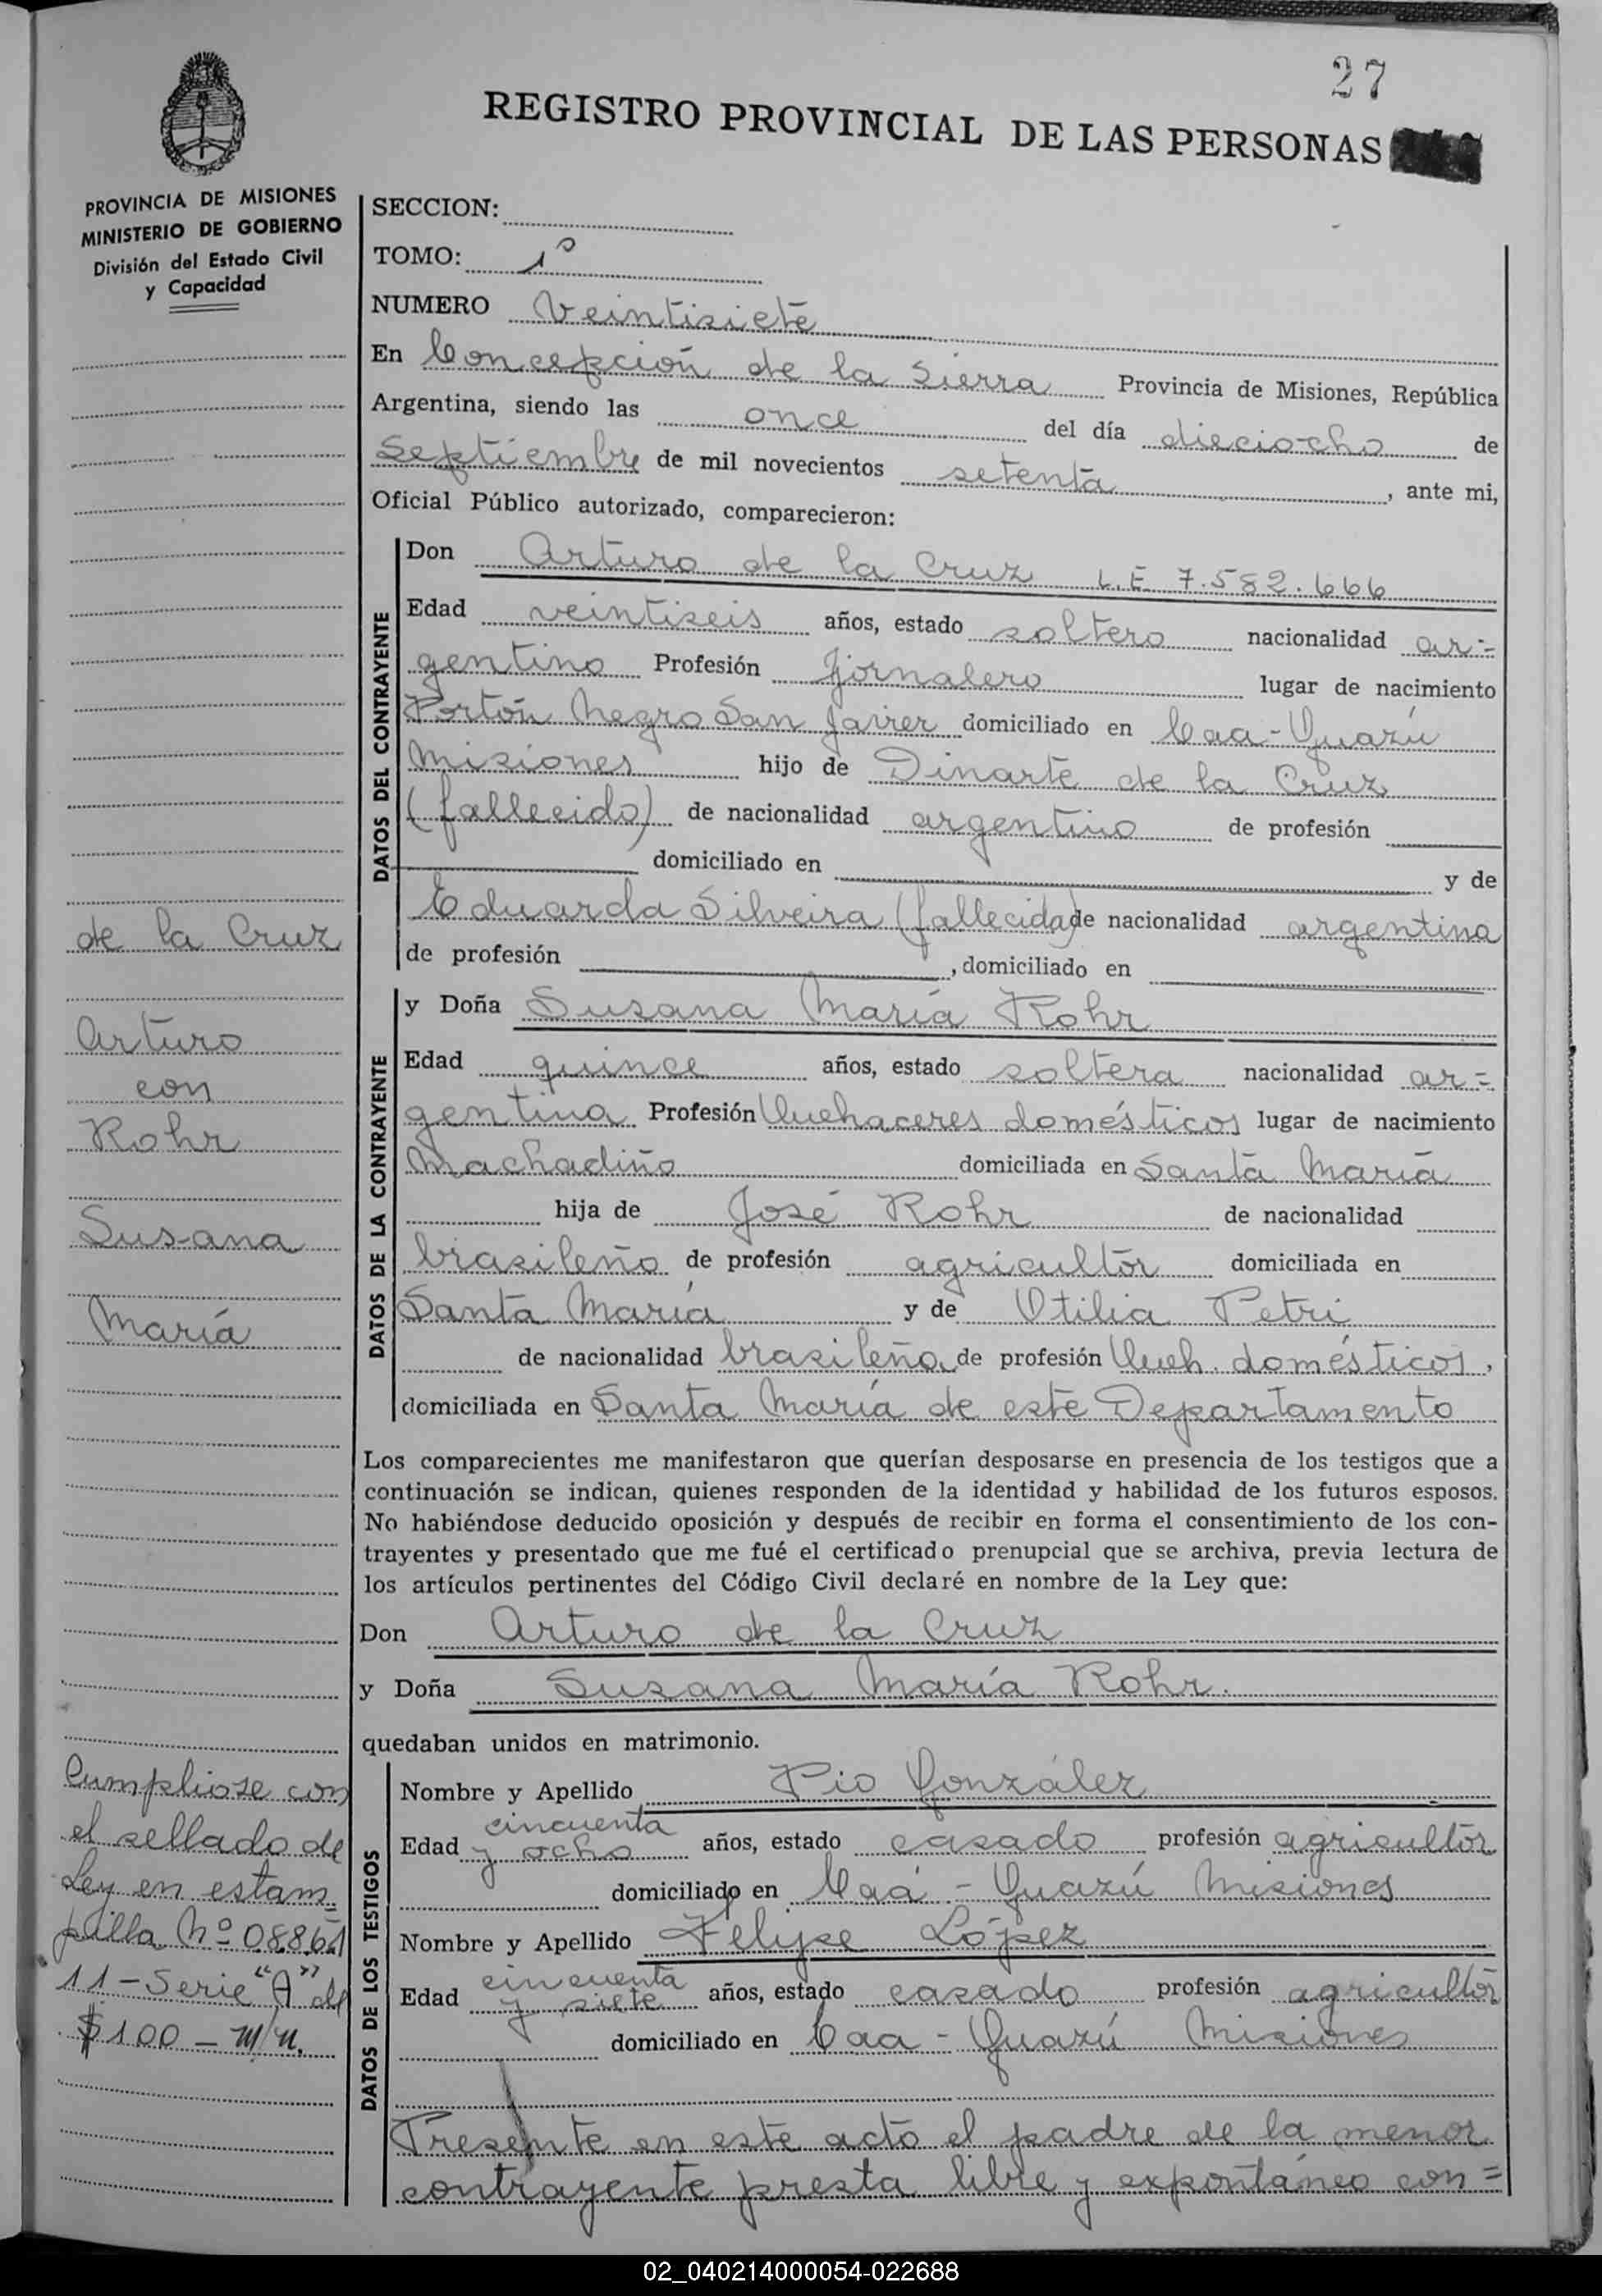 27
REGISTRO PROVINCIAL DE LAS PERSONAS
PROVINCIA DE MISIONES
MINISTERIO DE GOBIERNO
División del Estado Civil
y Capacidad
SECCION:
TOMO: 1º
NUMERO Veintisiete
En Concepción de la Sierra Provincia de Misiones, República
Argentina, siendo las once del día dieciocho de
Septiembre de mil novecientos setenta, ante mi,
Oficial Público autorizado, comparecieron:
DATOS DEL CONTRAYENTE
Don Arturo de la Cruz L.E 7.582.666
Edad veintiseis años, estado soltero nacionalidad ar=
gentino Profesión Jornalero lugar de nacimiento
Portón Negro San Javier domiciliado en Caa-Guazú
Misiones hijo de Dinarte de la Cruz
(fallecido) de nacionalidad argentino de profesión
domiciliado en y de
Eduarda Silveira (fallecida) de nacionalidad argentina
de profesión , domiciliado en
DATOS DE LA CONTRAYENTE
y Doña Susana María Rohr
Edad quince años, estado soltera nacionalidad ar=
gentina Profesión Quehaceres domésticos lugar de nacimiento
Machadiño domiciliada en Santa María
hija de José Rohr de nacionalidad
brasileño de profesión agricultor domiciliada en
Santa María y de Otilia Petri
de nacionalidad brasileña de profesión Queh. domésticos,
domiciliada en Santa María de este Departamento
Los comparecientes me manifestaron que querían desposarse en presencia de los testigos que a
continuación se indican, quienes responden de la identidad y habilidad de los futuros esposos.
No habiéndose deducido oposición y después de recibir en forma el consentimiento de los con-
trayentes y presentado que me fué el certificado prenupcial que se archiva, previa lectura de
los artículos pertinentes del Código Civil declaré en nombre de la Ley que:
Don Arturo de la Cruz
y Doña Susana María Rohr.
quedaban unidos en matrimonio.
DATOS DE LOS TESTIGOS
Nombre y Apellido Pio González
Edad cincuenta y ocho años, estado casado profesión agricultor
domiciliado en Caá-Guazú Misiones
Nombre y Apellido Felipe López
Edad cincuenta y siete años, estado casado profesión agricultor
domiciliado en Caa-Guazú Misiones
Presente en este acto el padre de la menor
contrayente presta libre y expontáneo con=
de la Cruz
Arturo
con
Rohr
Susana
María
Cumpliose con
el sellado de
Ley en estam=
pilla Nº 08861
11-Serie "A" de
$100-m/n.
02_040214000054-022688